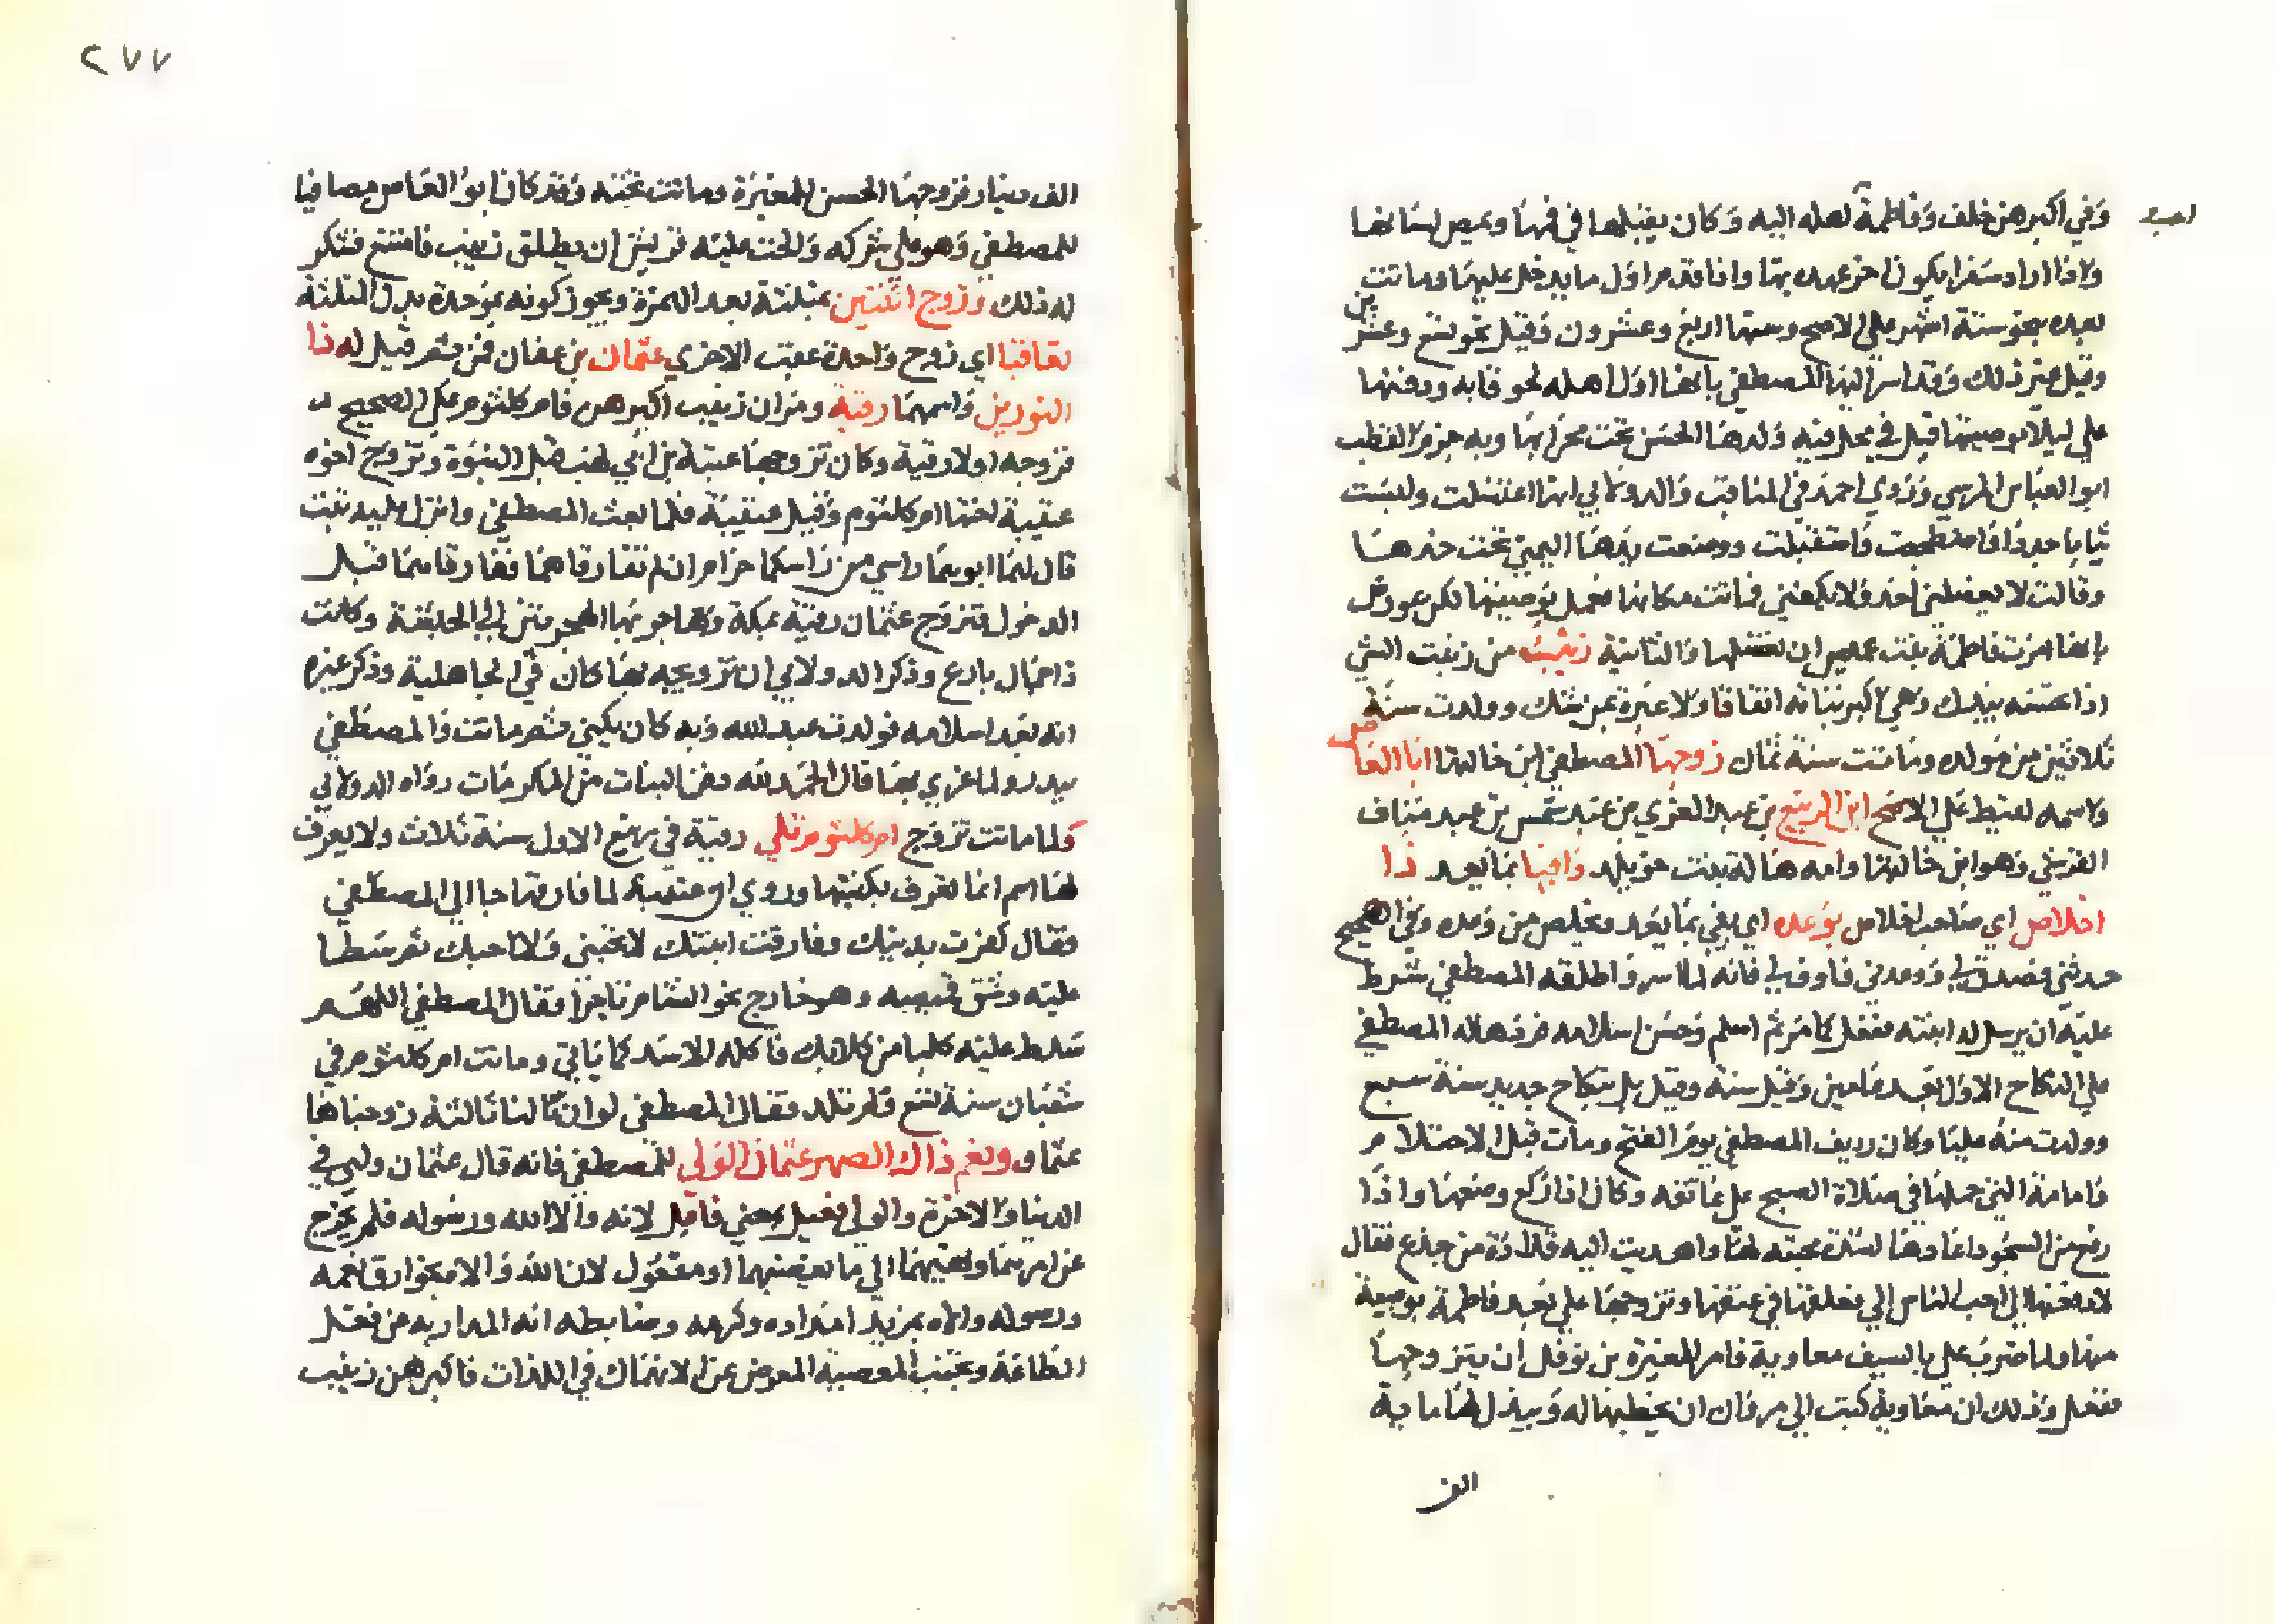 وفي اكبرهن خلف وفاطمة اهله اليه وكان يقبلها في فمها ويمص لسانها
احب
واذا اراد سفرا يكون اخر عهده بها واذا قدم اول ما يدخل عليها وماتت
بعده بنحو ستة اشهر علي الاصح وسنها اربع وعشرون وقيل نحو تسع وعشرين
وقيل غير ذلك وقد اسر اليها المصطفي بانها اول اهله لحوقا به ودفنها
علي ليلا بوصيتها قيل في محل فيه ولدها الحسن تحت محرابها وبه جزم القطب
ابو العباس المرسي وروي احمد في المناقب والدولابي انها اغتسلت ولبست
ثيابا جددا فاضطجعت واستقبلت ووضعت يدها اليمني تحت خدها
وقالت لا يغسلني احد ولا يكفني فماتت مكانها فعمل بوصيتها لكن عورض
بانها امرت فاطمة بنت عميس ان تغسلها والثانية زينب من زنبت الشي
اذا عتقته بيدك وهي اكبر بناته اتفاقا ولا عبرة بمن شك وولدت سنة
ثلاثين من مولده وماتت سنة ثمان زوجها المصطفي ابن خالتها ابا العاص
واسمه لقيط علي الاصح ابن الربيع بن عبد العزي بن عبد شمس بن عبد مناف
القرشي وهو ابن خالتها وامه هالة بنت خويلد وافيا بما يعد ذا
اخلاص اي صاحب اخلاص بوعده اي يفي بما يعد ويخلص من وعده وفي الصحيح
حدثني فصدق لي ووعدني فاوفي لي فانه لما اسر واطلقه المصطفي شرط
عليه ان يرسل له ابنته ففعل كما مر ثم اسلم وحسن اسلامه فردها له المصطفي
علي النكاح الاول بعد عامين وقيل سنة وقيل بل بنكاح جديد سنة سبع
وولدت منه عليا وكان رديف المصطفي يوم الفتح ومات قبل الاحتلام
فامامة التي حملها في صلاة الصبح علي عاتقه وكان اذا ركع وضعها واذا
رفع من السجود اعادها لشدة محبته لها واهديت اليه قلادة من جزع فقال
لادفعنها الي احب الناس الي فعلقها في عنقها وتزوجها علي بعد فاطمة بوصية
منها ولما ضرب علي بالسيف معاوية فامر المغيرة بن نوفل ان يتزوجها
ففعل وذلك ان معاوية كتب الي مروان ان يخطبها له ويبذل لها ماية
الف
٢٧٧
الف دينار فزوجها الحسن للمغيرة وماتت تحته وقد كان ابو العاص مصافيا
للمصطفي وهو علي شركه والحت عليه قريش ان يطلق زينب فامتنع فشكر
له ذلك وزوج اثنتين بمثلثة بعد الهمزة ويجوز كونه بموحدة بدل المثلثة
تعاقبا اي زوج واحدة عقب الاخري عثمان بن عفان فمن ثم قيل له ذا
النورين واسمهما رقية ومر ان زينب اكبرهن فام كلثوم علي الصحيح
فزوجه اولا رقية وكان تزوجها عتبة بن ابي لهب قبل النبوة وتزوج اخوه
عتيبة اختها ام كلثوم وقيل عتيبة فلما بعث المصطفي وانزل عليه تبت
قال لهما ابوهما راسي من راسكما حرام ان لم تفارقاهما ففارقاهما قبل
الدخول فتزوج عثمان رقية بمكة وهاجر بها الهجرتين الي الحبشة وكانت
ذا جمال بارع وذكر الدولابي ان تزويجه بها كان في الجاهلية وذكر غيره
انه بعد اسلامه فولدت عبد الله وبه كان يكني ثم ماتت والمصطفي
ببدر ولما عزي بها قال الحمد لله دفن البنات من المكرمات رواه الدولابي
ولما ماتت تزوج ام كلثوم تلي رقية في ربيع الاول سنة ثلاث ولا يعرف
لها اسم انما تعرف بكنيتها وروي ان عتيبة لما فارقها جا الي المصطفي
فقال كفرت بدينك وفارقت ابنتك لا تحبني ولا احبك ثم سطا
عليه وشق قميصه وهو خارج نحو الشام تاجرا فقال المصطفي اللهم
سلط عليه كلبا من كلابك فاكله الاسد كما ياتي وماتت ام كلثوم في
شعبان سنة تسع ولم تلد فقال المصطفي لو ان لنا ثالثة زوجناها
عثمان ونعم ذاك الصهر عثمان الولي للمصطفي فانه قال عثمان وليي في
الدنيا والاخرة والولي فعيل بمعني فاعل لانه والا الله ورسوله فلم يخرج
عن امرهما ونهيهما الي ما يغضبهما او مفعول لان الله والاه بخوارق نعمه
ورسوله والاه بمزيد امداده وكرمه وضابطه انه المداوم من فعل
الطاعة وتجنب المعصية المعرض عن الانهماك في اللذات فاكبرهن زينب